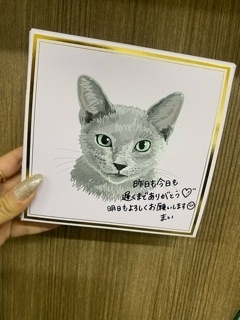 昨日も今日も
遅くまでありがとう♡
明日もよろしくお願いします☺
まい